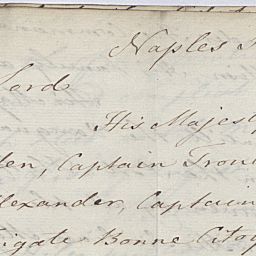 Naples
Lord
His Majest
den, Captain Trou
lexander, Captain
rigate Bonne Citoy